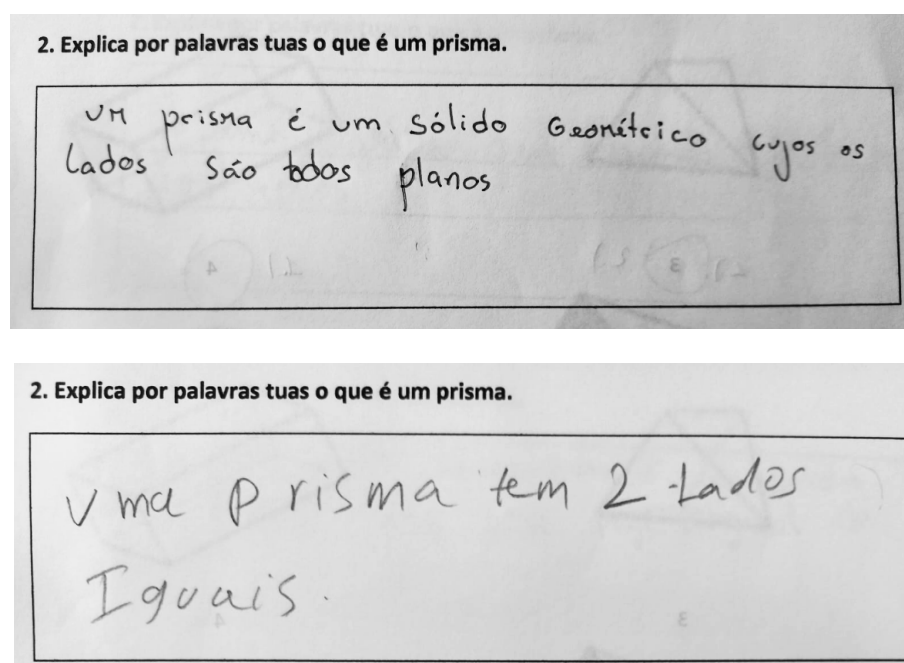 2. Explica por palavras tuas o que é um prisma.
UM prisma é um sólido Geométrico cujos os
lados são todos planos
2. Explica por palavras tuas o que é um prisma.
Uma prisma tem 2 Lados
Iguais.